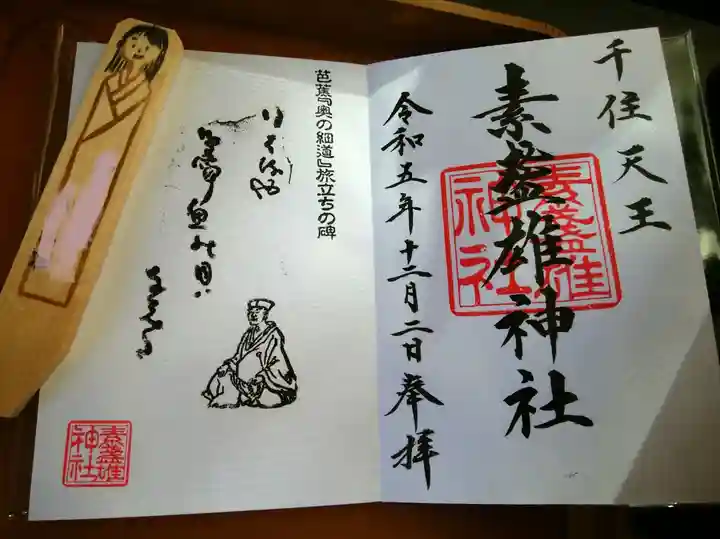 千住天王
素盞雄神社
素盞雄神社
令和五年十二月二日奉拝
芭蕉『奥の細道』旅立ちの碑
行く春や
鳥啼魚の目は
なみだ
素盞雄神社